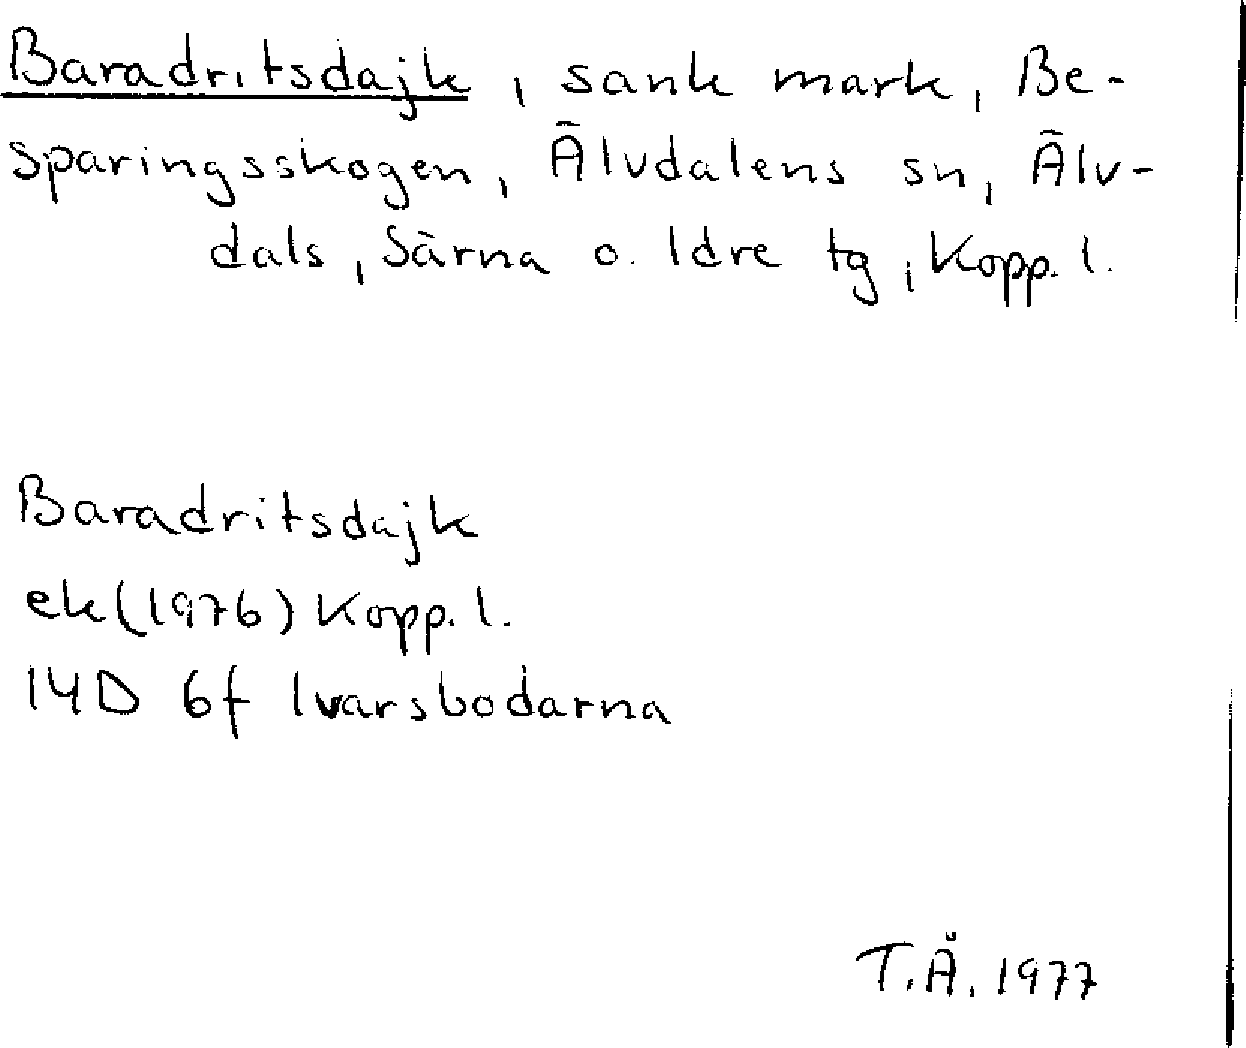 Baradritsdajk, sank mark, Be-
sparingsskogen, Älvdalens sn, Älv-
dals, Särna o. Idre tg, Kopp. l.
Baradritsdajk
ek (1976) Kopp. l.
14D 6f Ivarsbodarna
T.Å. 1977